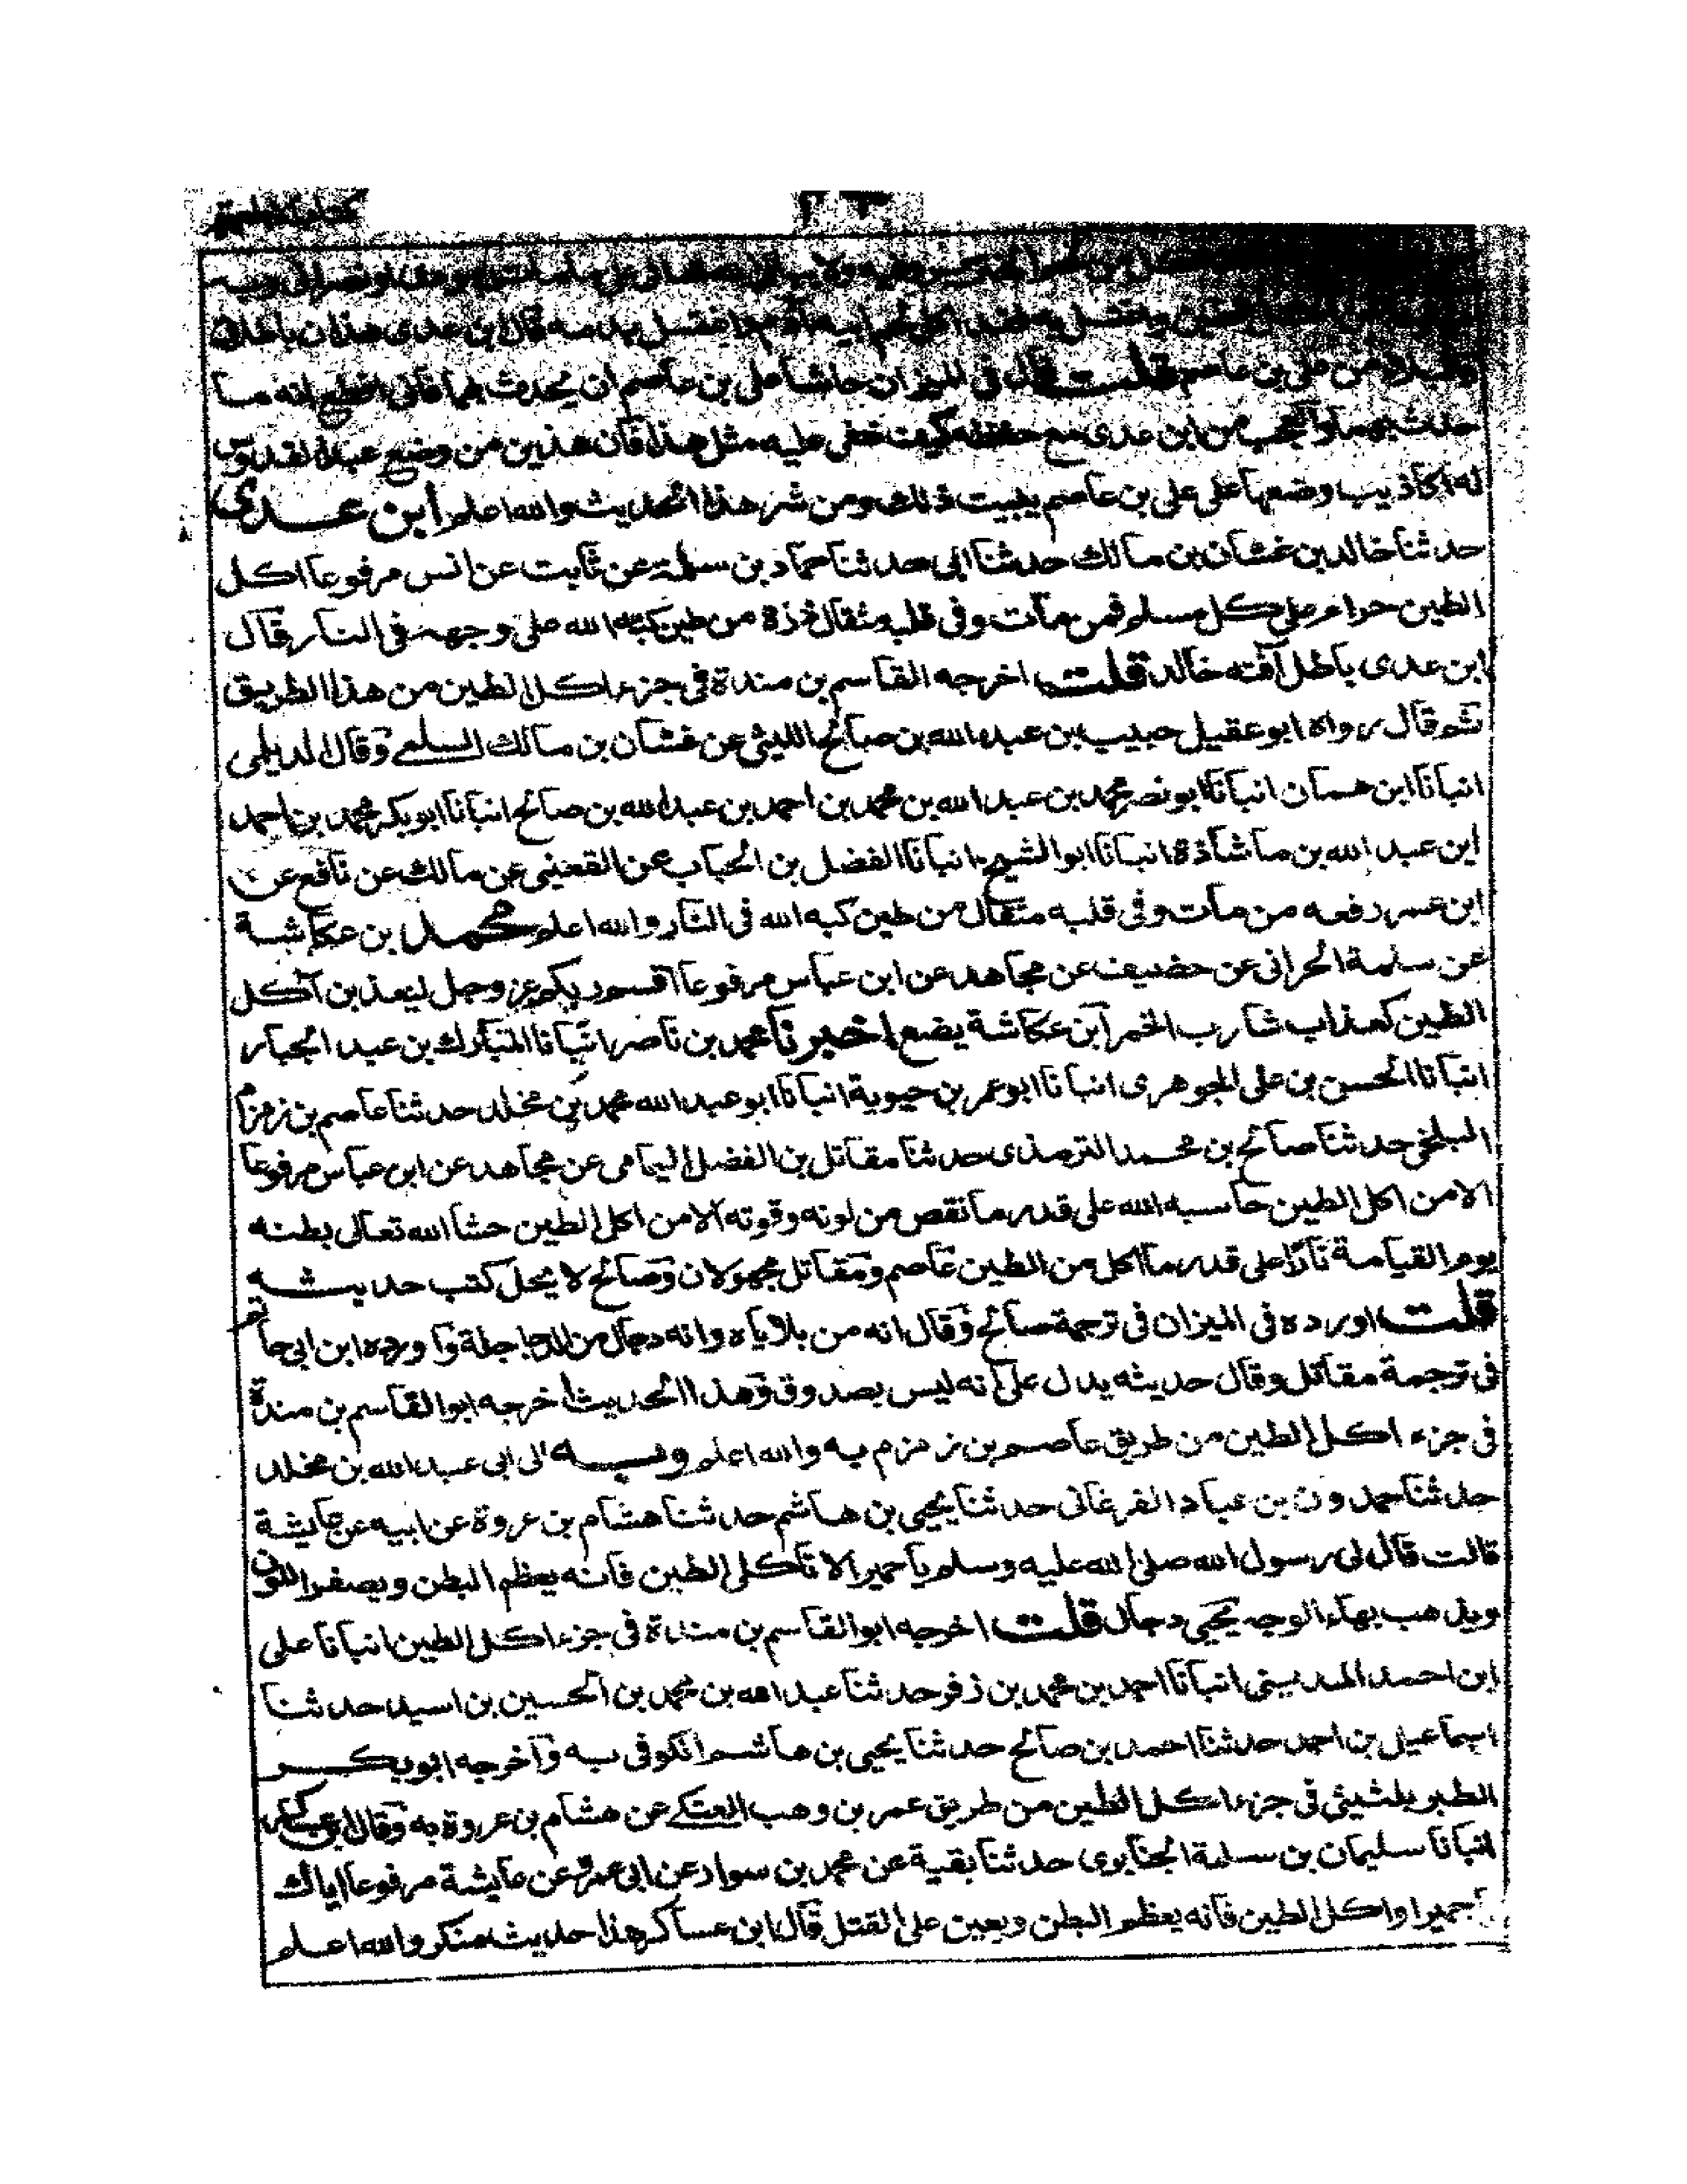 من علي بن عاصم قلت قال في الميزان حاشا علي بن عاصم ان يحدث بهما فاني اقطع انه ما
حدث بهما والعجب من ابن عدي مع حفظه كيف خفي عليه مثل هذا فان هذين من وضع عبد القدوس
له اكاذيب وضعها على علي بن عاصم يبيت ذلك ومن شر هذا الحديث والله اعلم ابن عدي
حدثنا خالد بن غشان بن مالك حدثنا ابي حدثنا حماد بن سلمة عن ثابت عن انس مرفوعا اكل
الطين حرام على كل مسلم فمن مات وفي قلبه مثقال ذرة من طين كبه الله على وجهه في النار قال
ابن عدي باطل آفته خالد قلت اخرجه القاسم بن مندة في جزء اكل الطين من هذا الطريق
ثم قال رواه ابو عقيل حبيب بن عبد الله بن صالح الليثي عن غشان بن مالك السلمي وقال الديلمي
انبانا ابن همان انبانا ابو نصر محمد بن عبد الله بن محمد بن احمد بن عبد الله بن صالح انبانا ابو بكر محمد بن احمد
ابن عبد الله بن ماشاذة انبانا ابو الشيخ انبانا الفضل بن الحباب عن القعنبي عن مالك عن نافع عن
ابن عمر رفعه من مات وفي قلبه مثقال من طين كبه الله في النار والله اعلم محمد بن عكاشة
عن سلمة الحراني عن خصيف عن مجاهد عن ابن عباس مرفوعا اقسم ربكم عز وجل ليعذبن آكل
الطين كعذاب شارب الخمر ابن عكاشة يضع اخبرنا محمد بن ناصر انبانا المبارك بن عبد الجبار
انبانا الحسن بن علي الجوهري انبانا ابو عمر بن حيوية انبانا ابو عبد الله محمد بن مخلد حدثنا عاصم بن زمزم
البلخي حدثنا صالح بن محمد الترمذي حدثنا مقاتل بن الفضل اليمامي عن مجاهد عن ابن عباس مرفوعا
الا من اكل الطين حاسبه الله على قدر ما نقص من لونه وقوته الا من اكل الطين حشا الله تعالى بطنه
يوم القيامة نارا على قدر ما اكل من الطين عاصم ومقاتل مجهولان وصالح لا يحل كتب حديثه
قلت اورده في الميزان في ترجمة صالح وقال انه من بلاياه وانه دجال من الدجاجلة واورده ابن ابي حاتم
في ترجمة مقاتل وقال حديثه يدل على انه ليس بصدوق وهذا الحديث اخرجه ابو القاسم بن مندة
في جزء اكل الطين من طريق عاصم بن زمزم به والله اعلم وبه الى ابي عبد الله بن مخلد
حدثنا حمدون بن عباد الفرغاني حدثنا يحيى بن هاشم حدثنا هشام بن عروة عن ابيه عن عايشة
قالت قال لي رسول الله صلى الله عليه وسلم يا حميرا لا تاكلي الطين فانه يعظم البطن ويصفر اللون
ويذهب بهاء الوجه يحيى دجال قلت اخرجه ابو القاسم بن مندة في جزء اكل الطين انبانا علي
ابن احمد المديني انبانا احمد بن محمد بن زفر حدثنا عبد الله بن محمد بن الحسين بن اسيد حدثنا
اسماعيل بن احمد حدثنا احمد بن صالح حدثنا يحيى بن هاشم الكوفي به واخرجه ابو بكر
الطبريلثيثي في جزء اكل الطين من طريق عمر بن وهب العتكي عن هشام بن عروة به وقال ابن عساكر
انبانا سليمان بن سلمة الجنابوي حدثنا بقية عن محمد بن سوار عن ابي عمرة عن عايشة مرفوعا اياك
حميرا واكل الطين فانه يعظم البطن ويعين على القتل قال ابن عساكر هذا حديث منكر والله اعلم